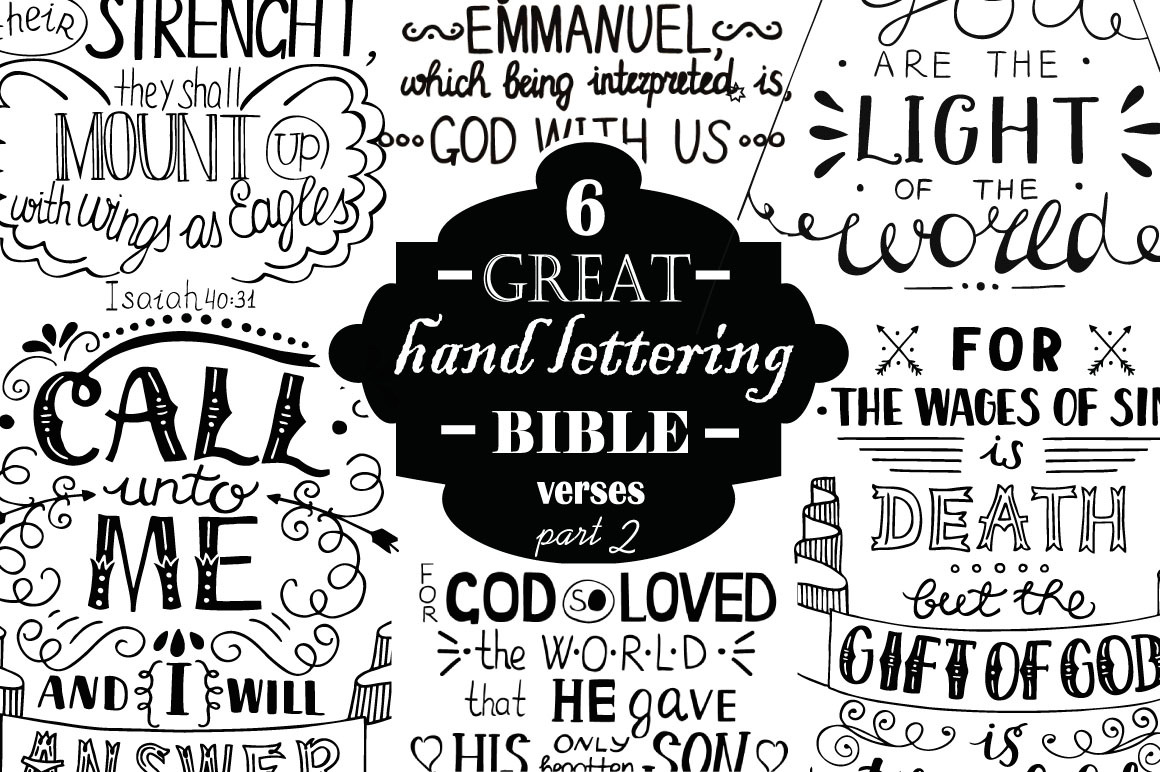 their STRENGHT,
they shall
MOUNT UP
with wings as Eagles
Isaiah 40:31
EMMANUEL,
which being interpreted, is,
GOD WITH US
You
ARE THE
LIGHT
OF THE
world
6
GREAT
hand lettering
BIBLE
verses
part 2
CALL
unto
ME
AND I WILL
ANSWER
FOR GOD SO LOVED
the W·O·R·L·D
that HE gave
HIS ONLY begotten SON
FOR
THE WAGES OF SIN
is
DEATH
but the
GIFT OF GOD
is